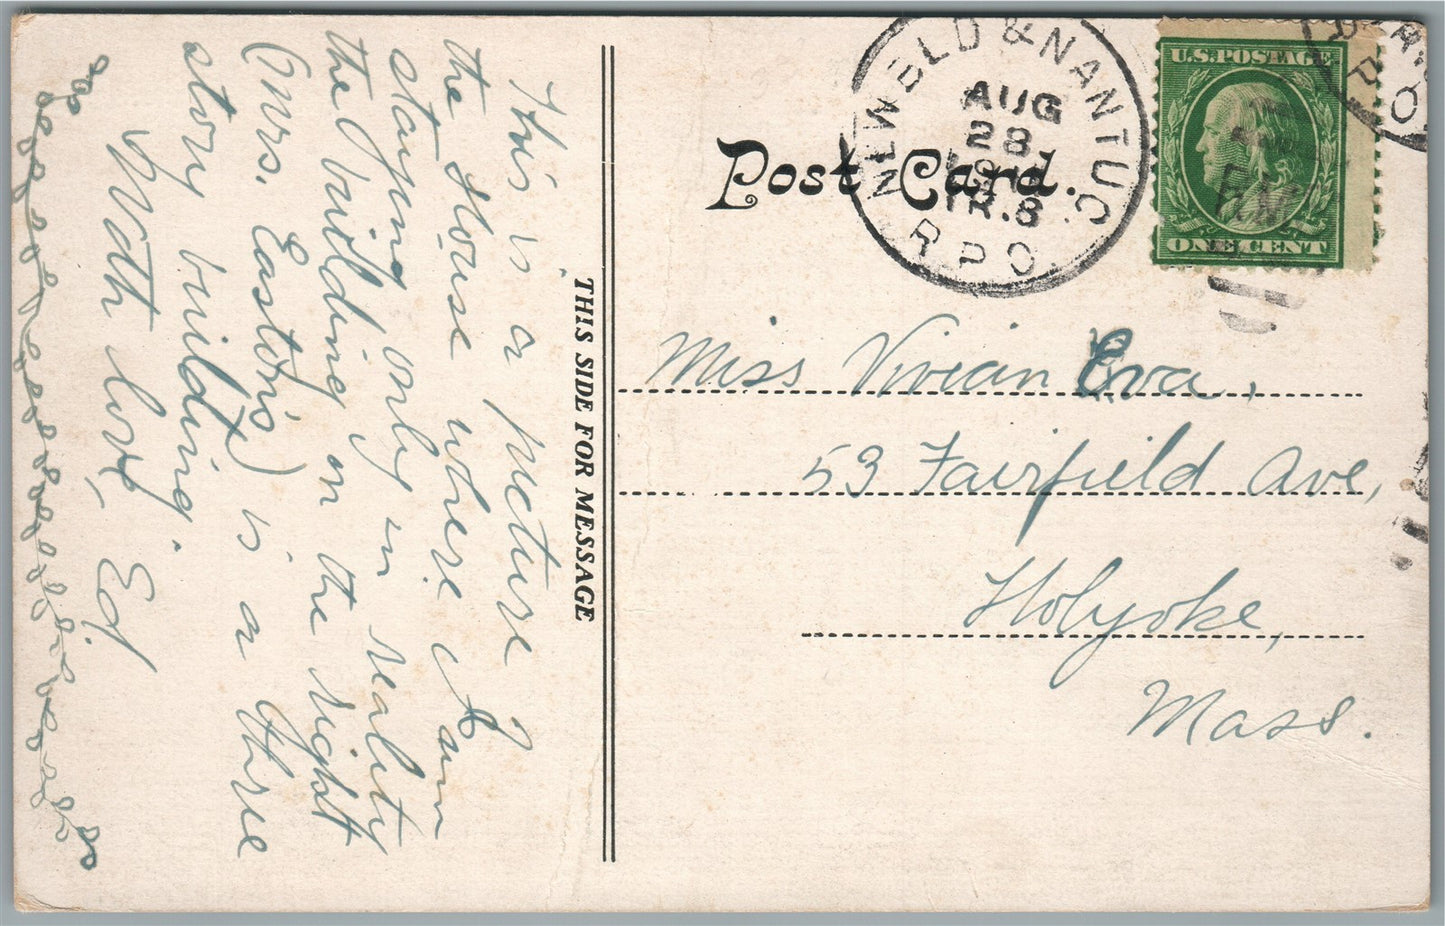 This is a picture of
the House where I am
staying only in reality
the building on the right
(Mrs. Easton's) is a three
story building.
With love, Ed.
THIS SIDE FOR MESSAGE
Post Card.
NEW BLD & NANTUC
AUG
28
TR.8
R.P.O.
U.S. POSTAGE
ONE CENT
Miss Vivian Eva,
53 Fairfield Ave,
Holyoke,
Mass.